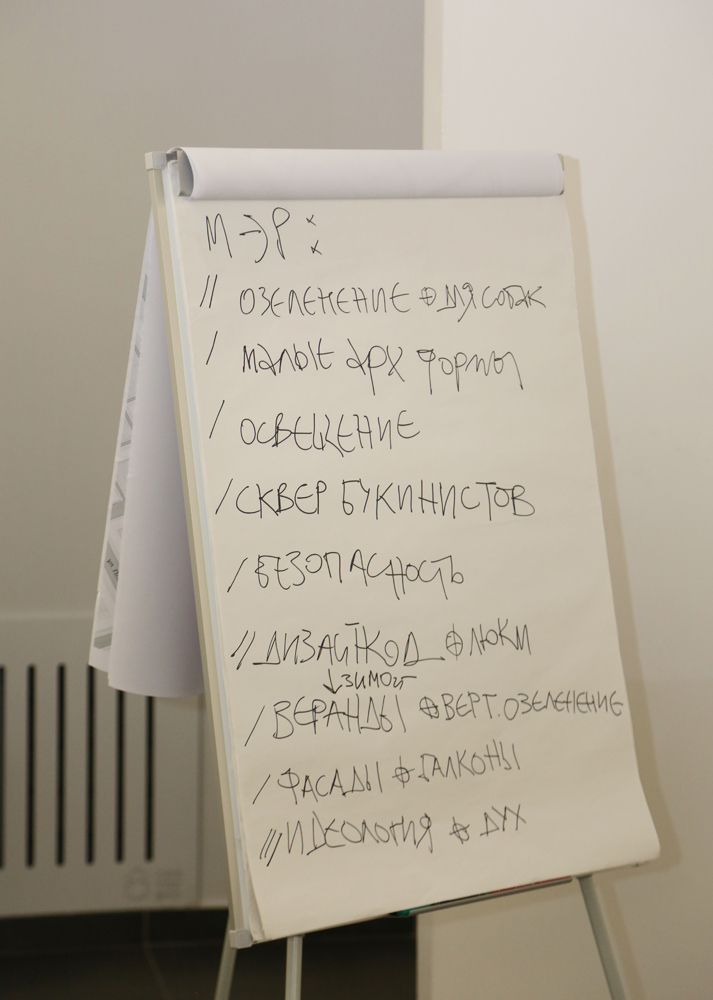 МЭР:
// ОЗЕЛЕНЕНИЕ ⊕ ДЛЯ СОБАК
/ малые арх формы
/ ОСВЕЩЕНИЕ
/ СКВЕР БУКИНИСТОВ
/ БЕЗОПАСНОСТЬ
// ДИЗАЙНКОД ⊕ ЛЮКИ
↓ЗИМОЙ
/ ВЕРАНДЫ ⊕ ВЕРТ. ОЗЕЛЕНЕНИЕ
/ ФАСАДЫ ⊕ БАЛКОНЫ
/// ИДЕОЛОГИЯ ⊕ ДУХ